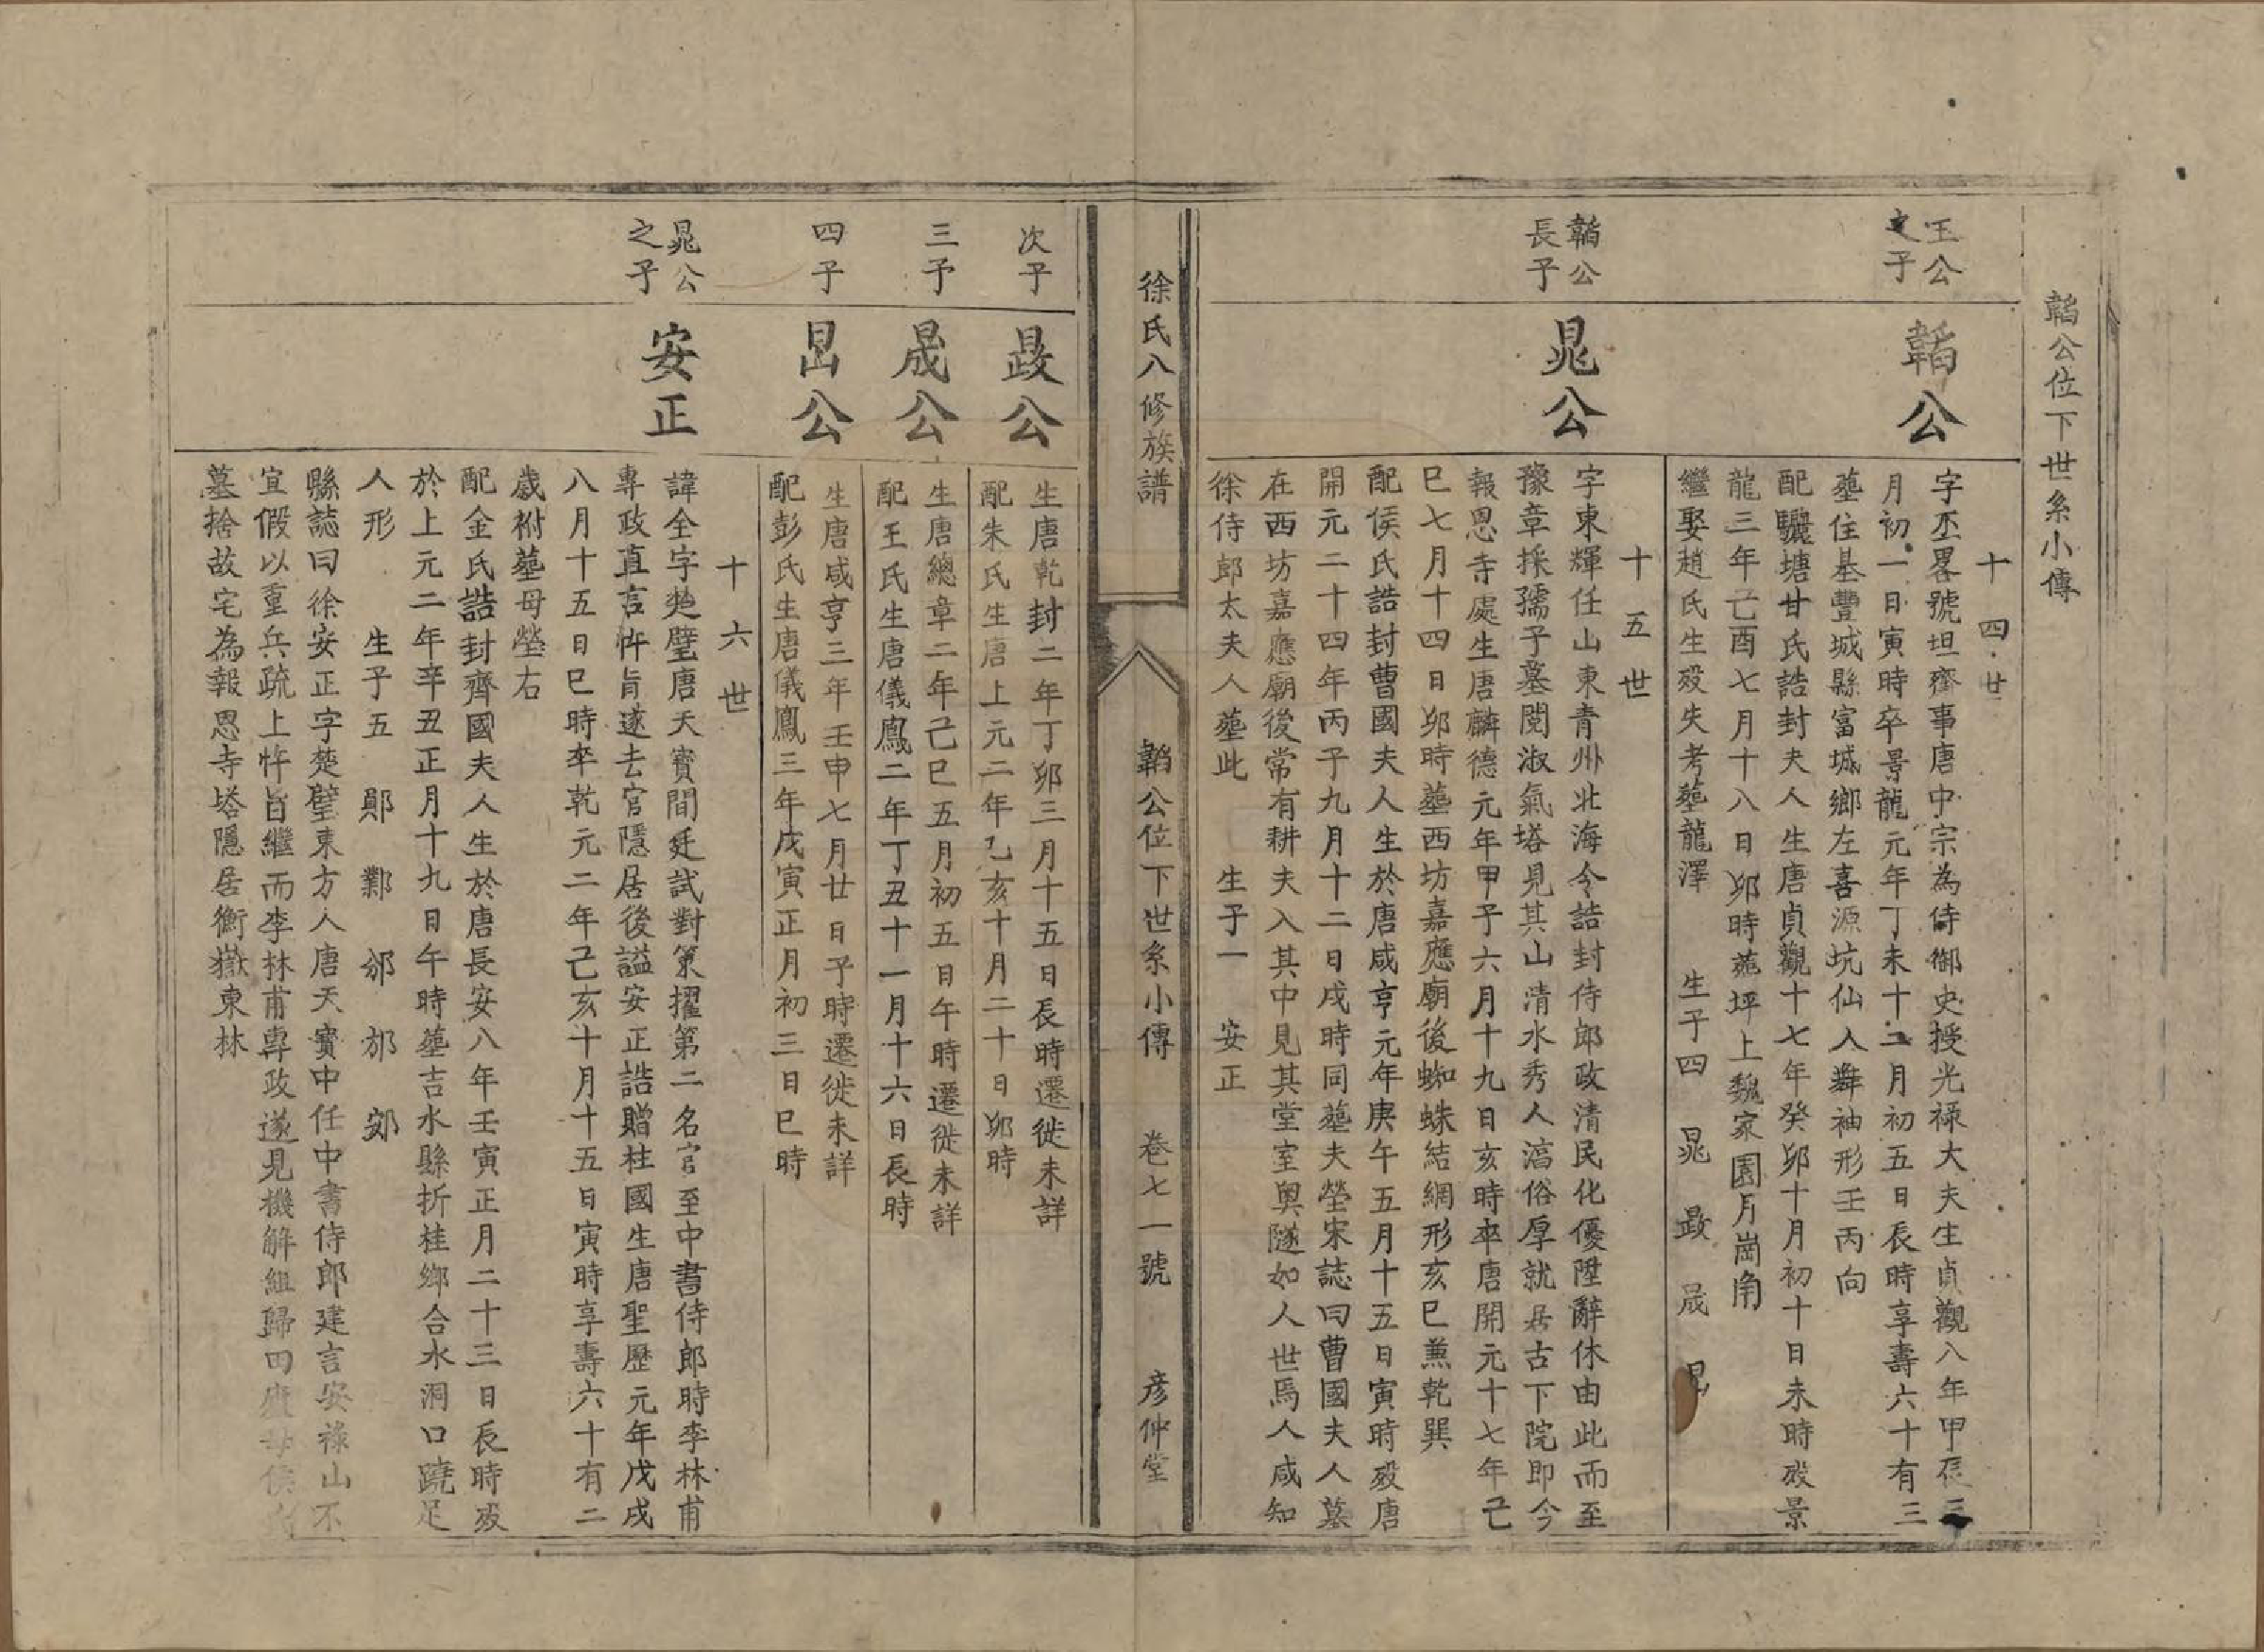 韜公位下世系小傳
十四世
王公
之子
韜公
字丕畧號坦齊事唐中宗為侍御史授光祿大夫生貞觀八年甲辰三
月初一日寅時卒景龍元年丁未十二月初五日長時享壽六十有三
塟住基豐城縣富城鄉左喜源坑仙人舞袖形壬丙向
配驪塘甘氏誥封夫人生唐貞觀十七年癸卯十月初十日未時歿景
龍三年己酉七月十八日卯時塟坪上魏家園月崗角
繼娶趙氏生歿失考塟龍澤 生子四 晁 㬝 晟 㫤
十五世
韜公
長子
晁公
字東輝任山東青州北海令誥封侍郎政清民化優陞辭休由此而至
豫章採孺子墓閱淑氣塔見其山清水秀人淊俗厚就居古下院即今
報恩寺處生唐麟德元年甲子六月十九日亥時卒唐開元十七年己
巳七月十四日卯時塟西坊嘉應廟後蜘蛛結網形亥巳兼乾巽
配侯氏誥封曹國夫人生於唐咸亨元年庚午五月十五日寅時歿唐
開元二十四年丙子九月十二日戌時同塟夫塋宋誌曰曹國夫人墓
在西坊嘉應廟後常有耕夫入其中見其堂室奧隧如人世焉人咸知
徐侍郎太夫人塟此 生子一 安正
徐氏八修族譜 韜公位下世系小傳 卷七一號 彦仲堂
次子
㬝公
生唐乾封二年丁卯三月十五日長時遷徙未詳
配朱氏生唐上元二年乙亥十月二十日卯時
三子
晟公
生唐總章二年己巳五月初五日午時遷徙未詳
配王氏生唐儀鳳二年丁丑十一月十六日長時
四子
㫤公
生唐咸亨三年壬申七月廿日子時遷徙未詳
配彭氏生唐儀鳳三年戊寅正月初三日巳時
十六世
晁公
之子
安正
諱全字楚璧唐天寶間廷試對策擢第二名官至中書侍郎時李林甫
專政直言忤旨遂去官隱居後謚安正誥贈柱國生唐聖歷元年戊戌
八月十五日巳時卒乾元二年己亥十月十五日寅時享壽六十有二
歲祔塟母塋右
配金氏誥封齊國夫人生於唐長安八年壬寅正月二十三日長時歿
於上元二年辛丑正月十九日午時塟吉水縣折桂鄉合水洞口蹺足
人形 生子五 鄖 鄴 邠 邡 郊
縣誌曰徐安正字楚璧東方人唐天寶中任中書侍郎建言安祿山不
宜假以重兵疏上忤旨繼而李林甫專政遂見機解組歸田廬母侯氏
墓捨故宅為報恩寺塔隱居衡嶽東林